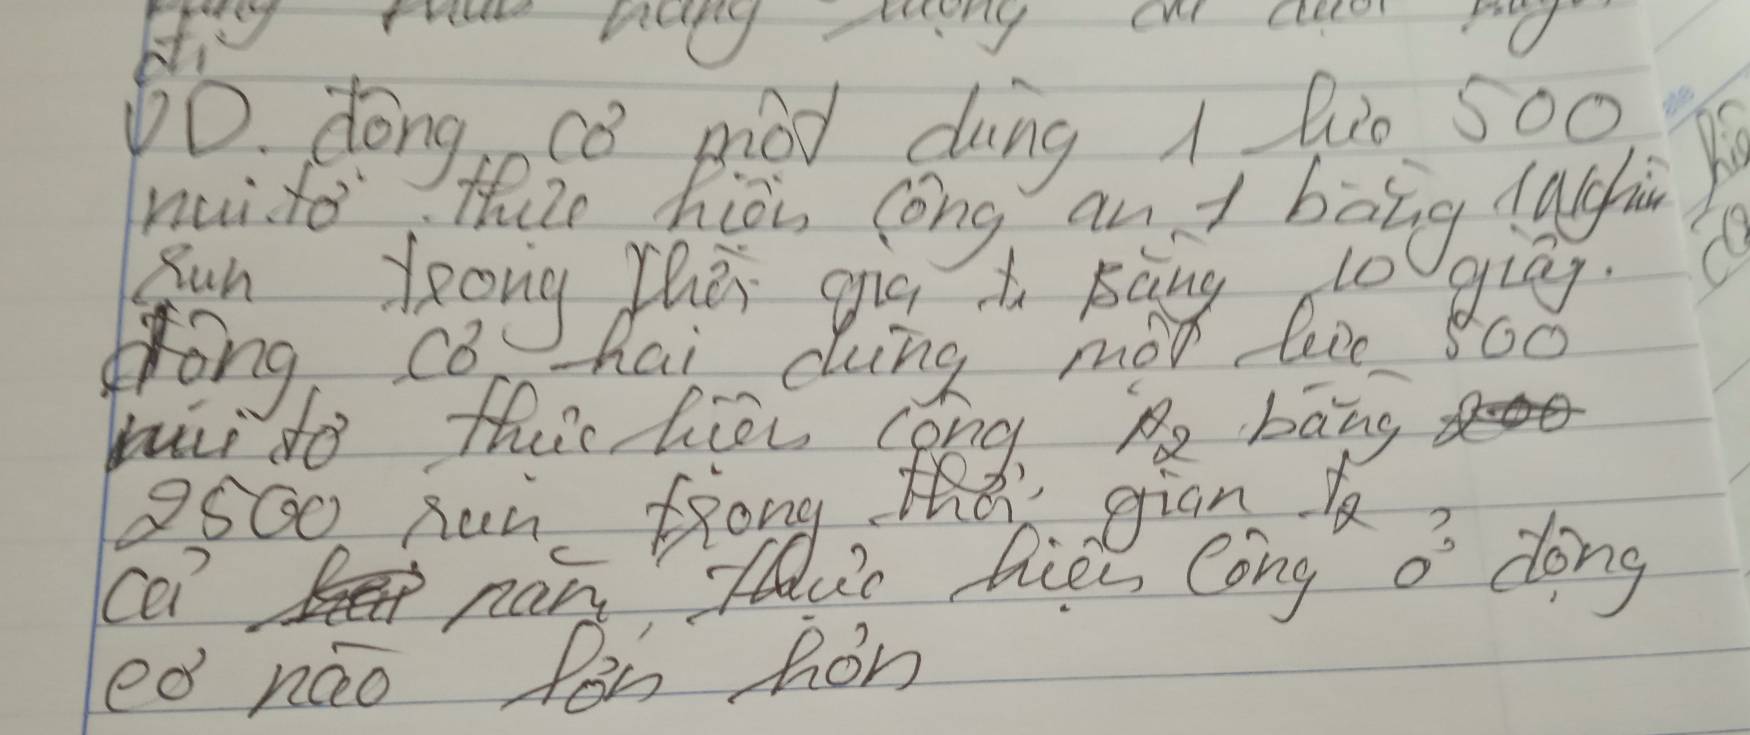 VD. động cơ một dùng 1 lực 500
niutơ thực hiện công A1 bằng 1 nghìn
Jun trong thời gia t1 bằng 10 giây.
động cơ hai dùng một lực 500
niutơ thực hiện công A2 bằng
2500 jun trong thời gian t2
cả năn thực hiện công ở động
cơ nào lớn hơn